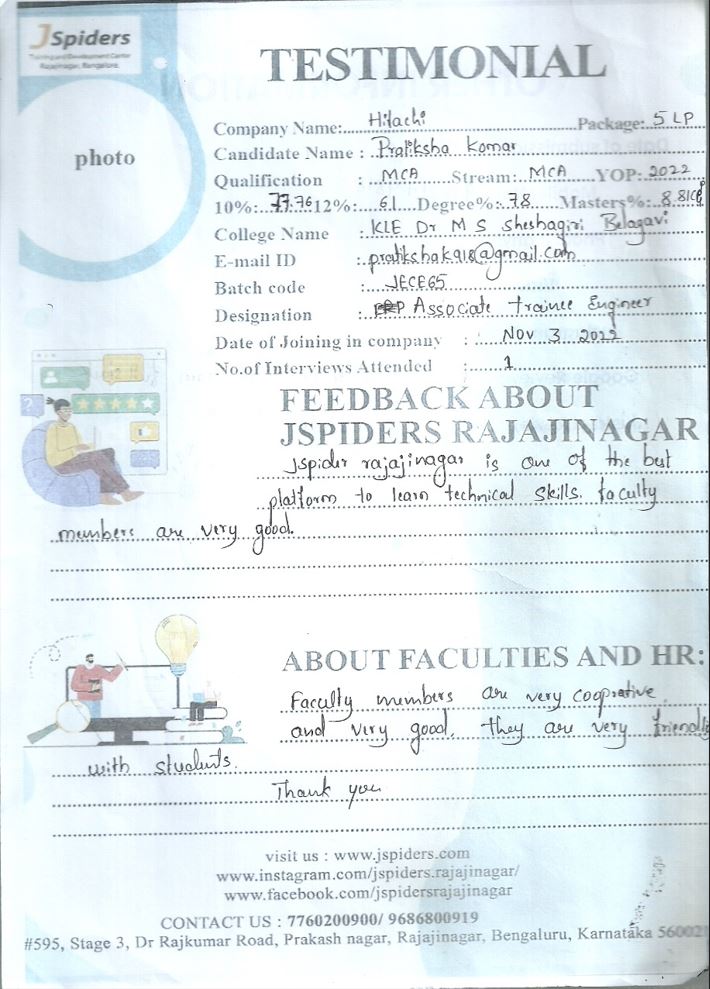 JSpiders
Training and Development Center
Rajajinagar, Bangalore.
TESTIMONIAL
photo
Company Name: Hitachi Package: 5 LP
Candidate Name : Pratiksha Komar
Qualification : MCA Stream: MCA YOP: 2022
10%: 77.76 12%: 61 Degree%: 78 Masters%: 8.81
College Name : KLE Dr M S Sheshagiri Belagavi
E-mail ID : pratikshaka18@gmail.com
Batch code : JECE65
Designation : Associate trainee Engineer
Date of Joining in company : Nov 3 2022
No.of Interviews Attended : 1
FEEDBACK ABOUT
JSPIDERS RAJAJINAGAR
Jspider rajajinagar is one of the best
platform to learn technical skills. faculty
members are very good.
ABOUT FACULTIES AND HR:
Faculty members are very cooprative
and very good. they are very friendly
with students.
Thank you
visit us : www.jspiders.com
www.instagram.com/jspiders.rajajinagar/
www.facebook.com/jspidersrajajinagar
CONTACT US : 7760200900/ 9686800919
#595, Stage 3, Dr Rajkumar Road, Prakash nagar, Rajajinagar, Bengaluru, Karnataka 56002